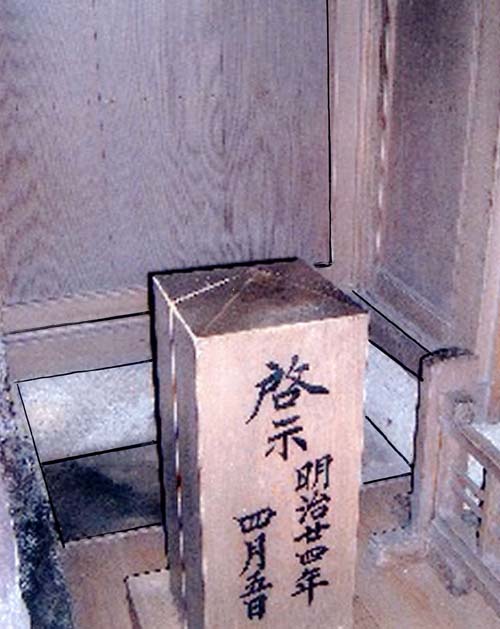 啓示
明治廿四年
四月五日